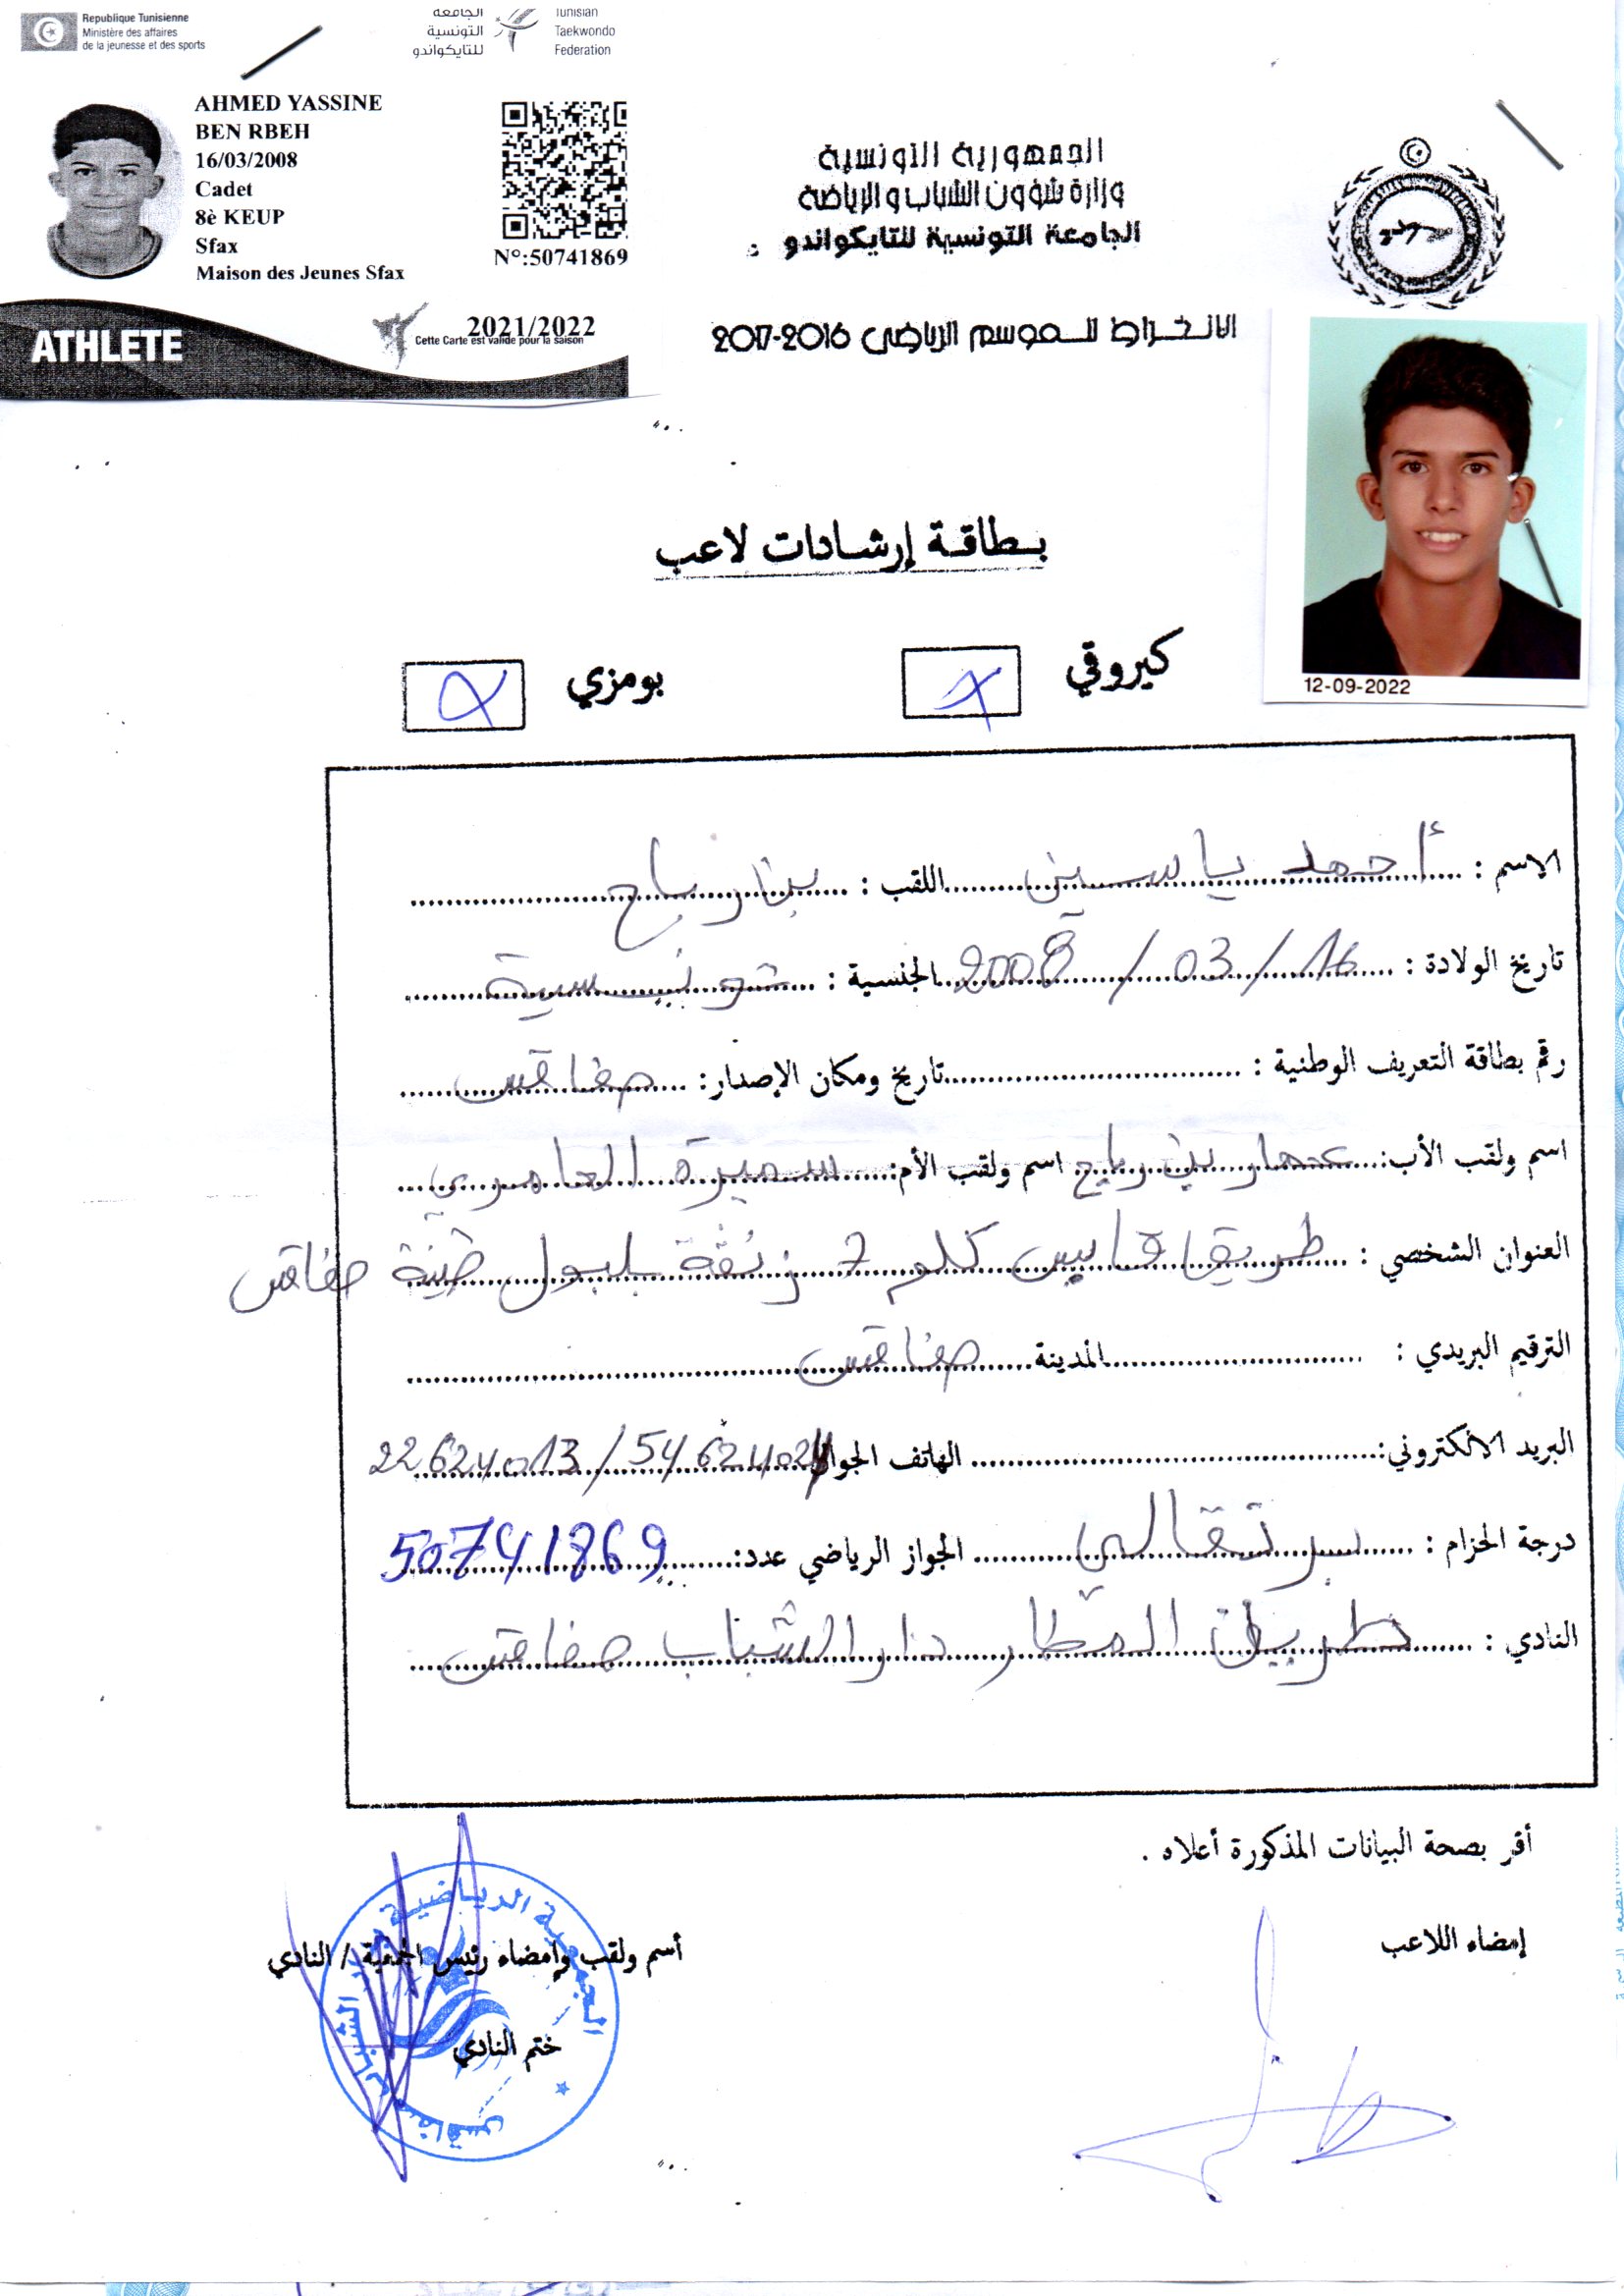 Republique Tunisienne
Ministère des affaires
de la jeunesse et des sports
الجامعة
التونسية
للتايكواندو
Tunisian
Taekwondo
Federation
AHMED YASSINE
BEN RBEH
16/03/2008
Cadet
8è KEUP
Sfax
Maison des Jeunes Sfax
N°:50741869
ATHLETE
2021/2022
Cette Carte est valide pour la saison
الجمهورية التونسية
وزارة شؤون الشباب و الرياضة
الجامعة التونسية للتايكواندو
الانخراط للموسم الرياضي 2016-2017
12-09-2022
بطاقة إرشادات لاعب
كيروقي x بومزي x
الاسم : أحمد ياسين اللقب : بن رباح
تاريخ الولادة : 16 / 03 / 2008 الجنسية : تونسية
رقم بطاقة التعريف الوطنية : تاريخ ومكان الإصدار: صفاقس
اسم ولقب الأب: عمار بن رباح اسم ولقب الأم: سميرة العامري
العنوان الشخصي : طريق قابس كلم 7 زنقة بلبول طينة صفاقس
الترقيم البريدي : المدينة صفاقس
البريد الالكتروني: الهاتف الجوال 22624013 / 54624024
درجة الحزام : برتقالي الجواز الرياضي عدد: 50741869
النادي : طريق المطار دار الشباب صفاقس
أقر بصحة البيانات المذكورة أعلاه .
إمضاء اللاعب
أسم ولقب وإمضاء رئيس الجمعية / النادي
ختم النادي
الجمعية الرياضية بدار الشباب صفاقس